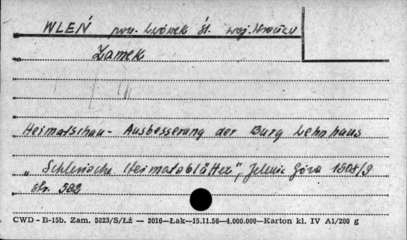 WLEŃ pow. Lwówek Śl. woj. Wrocław
Zamek
Heimatschau - Ausbesserung der Burg Lehnhaus
"Schlesische Heimatsblätter", Jelenia Góra 1908/9
str. 583
CWD - B-15b. Zam. 5323/S/ŁŻ — 3016—Łak—15.11.56—4.000.000—Karton kl. IV A1/200 g